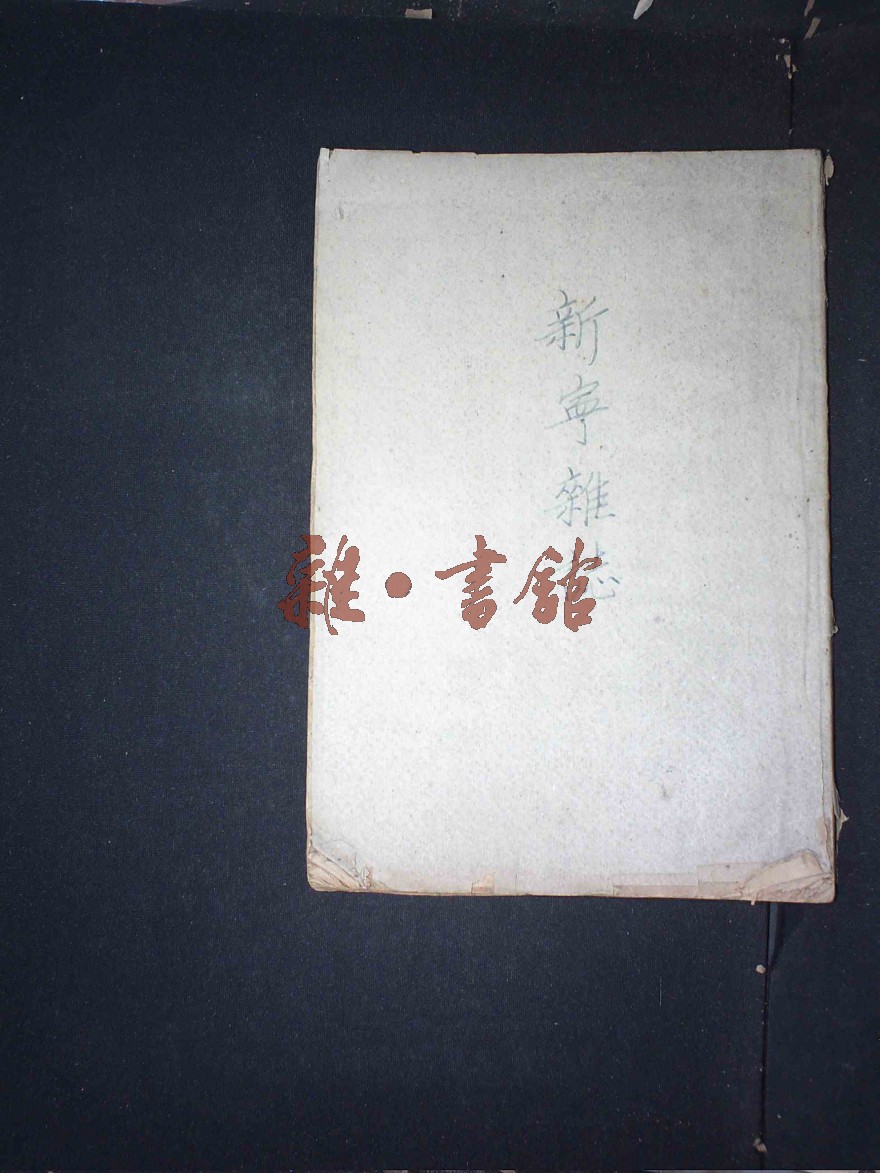 新寧雜誌
雜·書館